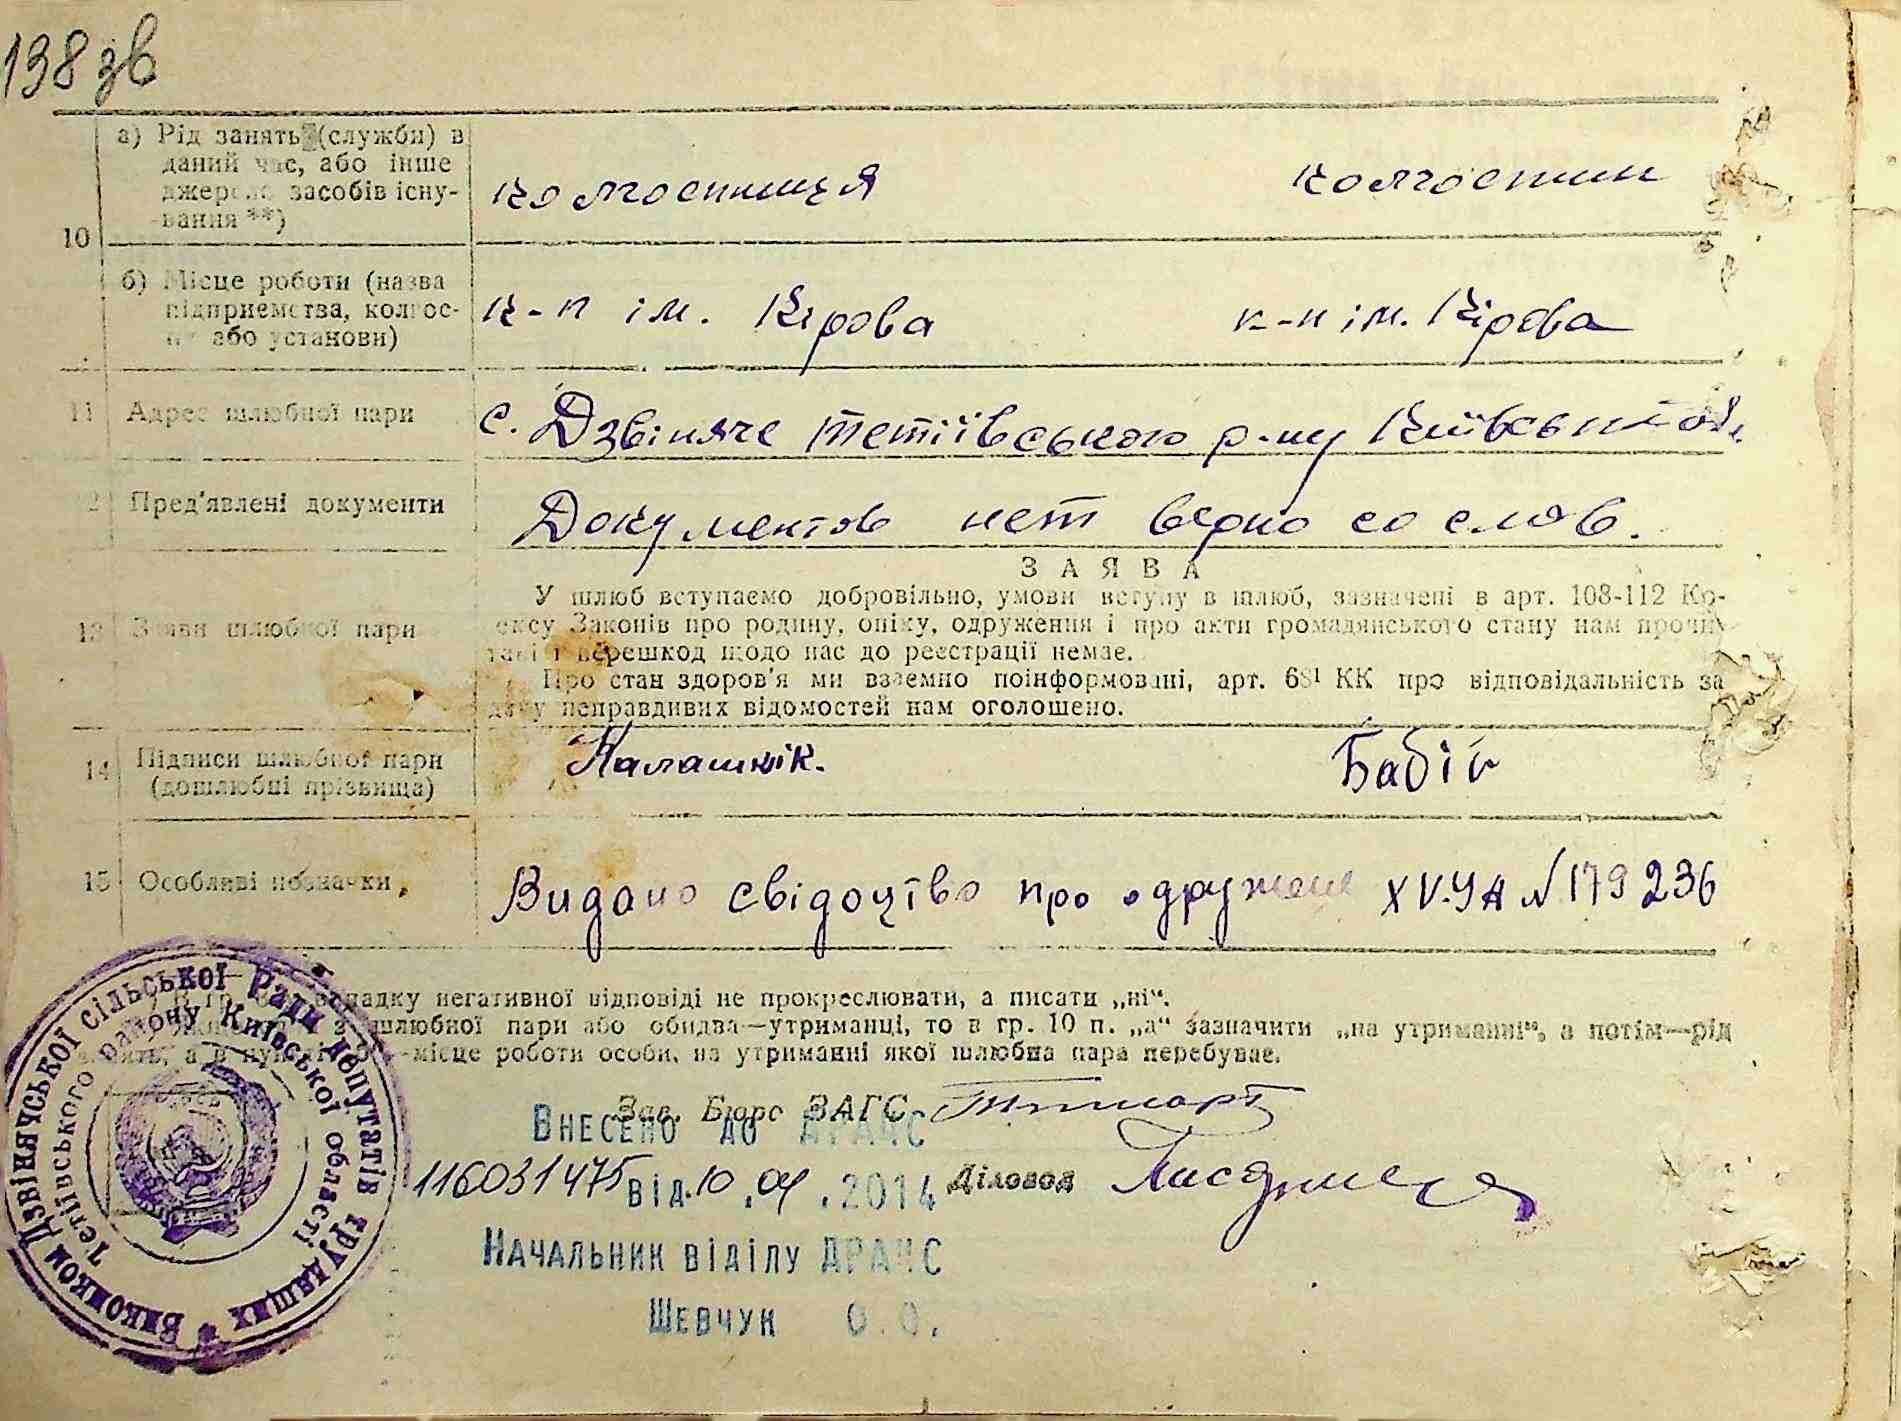 138 зв
а) Рід занять (служби) в
даний час, або інше
джерело засобів існу-
вання **)
колгоспниця колгоспник
10
б) Місце роботи (назва
підприємства, колгос-
пу або установи)
к-п ім. Кірова к-п ім. Кірова
11 Адрес шлюбної пари с. Дзвіняче Тетіївського р-ну Київської обл.
12 Пред'явлені документи Документов нет верно со слов.
ЗАЯВА
У шлюб вступаємо добровільно, умови вступу в шлюб, зазначені в арт. 108-112 Ко-
ексу Законів про родину, опіку, одруження і про акти громадянського стану нам прочи-
13 Заяви шлюбної пари
тані і перешкод щодо нас до реєстрації немає.
Про стан здоров'я ми взаємно поінформовані, арт. 68¹ КК про відповідальність за
дачу неправдивих відомостей нам оголошено.
14 Підписи шлюбної пари
(дошлюбні прізвища)
Калашнік. Бабій
15 Особливі позначки Видано свідоцтво про одружене XV-УА №179236
випадку негативної відповіді не прокреслювати, а писати „ні“.
з шлюбної пари або обидва—утриманці, то в гр. 10 п. „а“ зазначити „на утриманні“, а потім—рід
занять, а в пункті місце роботи особи, на утриманні якої шлюбна пара перебуває.
Зав. Бюро ЗАГС
Внесено до ДРАЦС
116031475 від 10.04.2014
Діловод
Начальник відділу ДРАЦС
Шевчук О.О.
Виконком Дзвіняцької сільської Ради депутатів трудящих
Тетіївського району Київської області